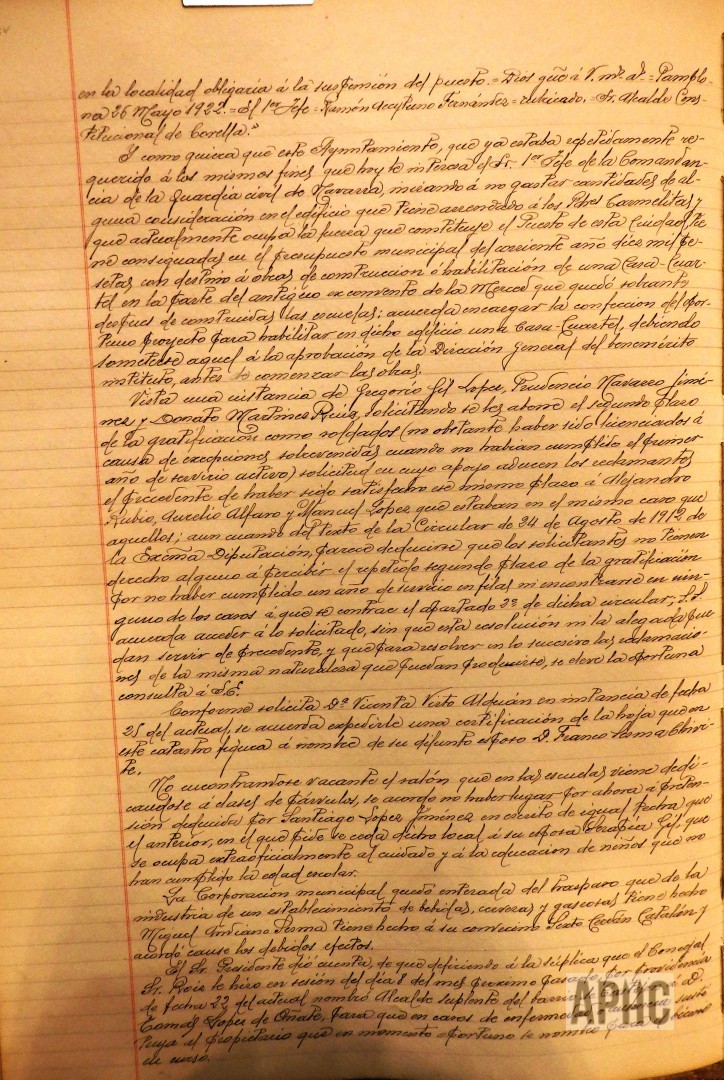 en la localidad obligaria á la supresión del puesto.= Dios gũe á V. mˢ. aˢ.= Pamplo-
na 26 Mayo 1922.= El 1er Jefe = Ramón Fernández = rubricado.= Sr. Alcalde Cons-
titucional de Corella."
Y como quiera que este Ayuntamiento, que ya estaba repetidamente re-
querido á los mismos fines que hoy le interesa el Sr. 1er Jefe de la Comandan-
cia de la Guardia civil de Navarra, mirando á no gastar cantidades de al-
guna consideración en el edificio que tiene arrendado á los Pdres Carmelitas y
que actualmente ocupa la fuerza que constituye el Puesto de esta Ciudad, tie-
ne consignadas en el presupuesto municipal del corriente año diez mil pe-
setas con destino á obras de construcción ó habilitación de una Casa-Cuar-
tel en la parte del antiguo exconvento de la Merced que quedó sobrante
despues de construidas las escuelas; acuerda encargar la confección del opor-
tuno proyecto para habilitar en dicho edificio una Casa-Cuartel, debiendo
someterse aquel á la aprobación de la Dirección General del benemérito
instituto, antes de comenzar las obras.
Vista una instancia de Gregorio Gil Lopez, Prudencio Navarro Jimé-
nez y Donato Martinez Ruiz, solicitando se les abone el segundo plazo
de la gratificación como soldados (no obstante haber sido licenciados á
causa de excepciones sobrevenidas cuando no habian cumplido el primer
año de servicio activo) solicitud en cuyo apoyo aducen los reclamantes
el precedente de haber sido satisfecho ese mismo plazo á Alejandro
Rubio, Aurelio Alfaro y Manuel Lopez que estaban en el mismo caso que
aquellos; aun cuando del texto de la Circular de 24 de Agosto de 1912 de
la Excma Diputación, parece deducirse que los solicitantes no tienen
derecho alguno á percibir el repetido segundo plazo de la gratificación
por no haber cumplido un año de servicio en filas ni encontrarse en nin-
guno de los casos á que se contrae el apartado 3º de dicha circular; S.S.
acuerda acceder á lo solicitado, sin que esta resolución ni la alegada pue-
dan servir de precedente, y que para resolver en lo sucesivo las reclamacio-
nes de la misma naturaleza que puedan producirse, se eleve la oportuna
consulta á S.E.
Conforme solicita Dª Vicenta Virto Alduán en instancia de fecha
25 del actual, se acuerda expedirle una certificación de la hoja que en
este catastro figura á nombre de su difunto esposo D. Franco Serma
No encontrandose vacante el salón que en las escuelas viene dedi-
candose á clases de párvulos, se acordo no haber lugar por ahora á preten-
sión deducida por Santiago Lopez Jiménez en escrito de igual fecha que
el anterior, en el que pide se ceda dicho local á su esposa Serafia Gil que
se ocupa extraoficialmente al cuidado y á la educacion de niños que no
han cumplido la edad escolar.
La Corporacion municipal quedó enterada del traspaso que de la
industria de un establecimiento de bebidas, cervezas y gaseosas tiene hecho
Miguel Serma tiene hecho á su convecino Sixto Catalán y
acordó cause los debidos efectos.
El Sr. Presidente dió cuenta, de que defiriendo á la súplica que el Concejal
Sr. Ruiz le hizo en sesión del dia 8 del mes proximo pasado, por providencia
de fecha 22 del actual nombró Alcalde suplente del barrio á D.
Tomás Lopez de Oñate, para que en casos de enfermedad ó ausencia susti-
tuya al propietario que en momento oportuno se nombró para el bienio
en curso.
APHC